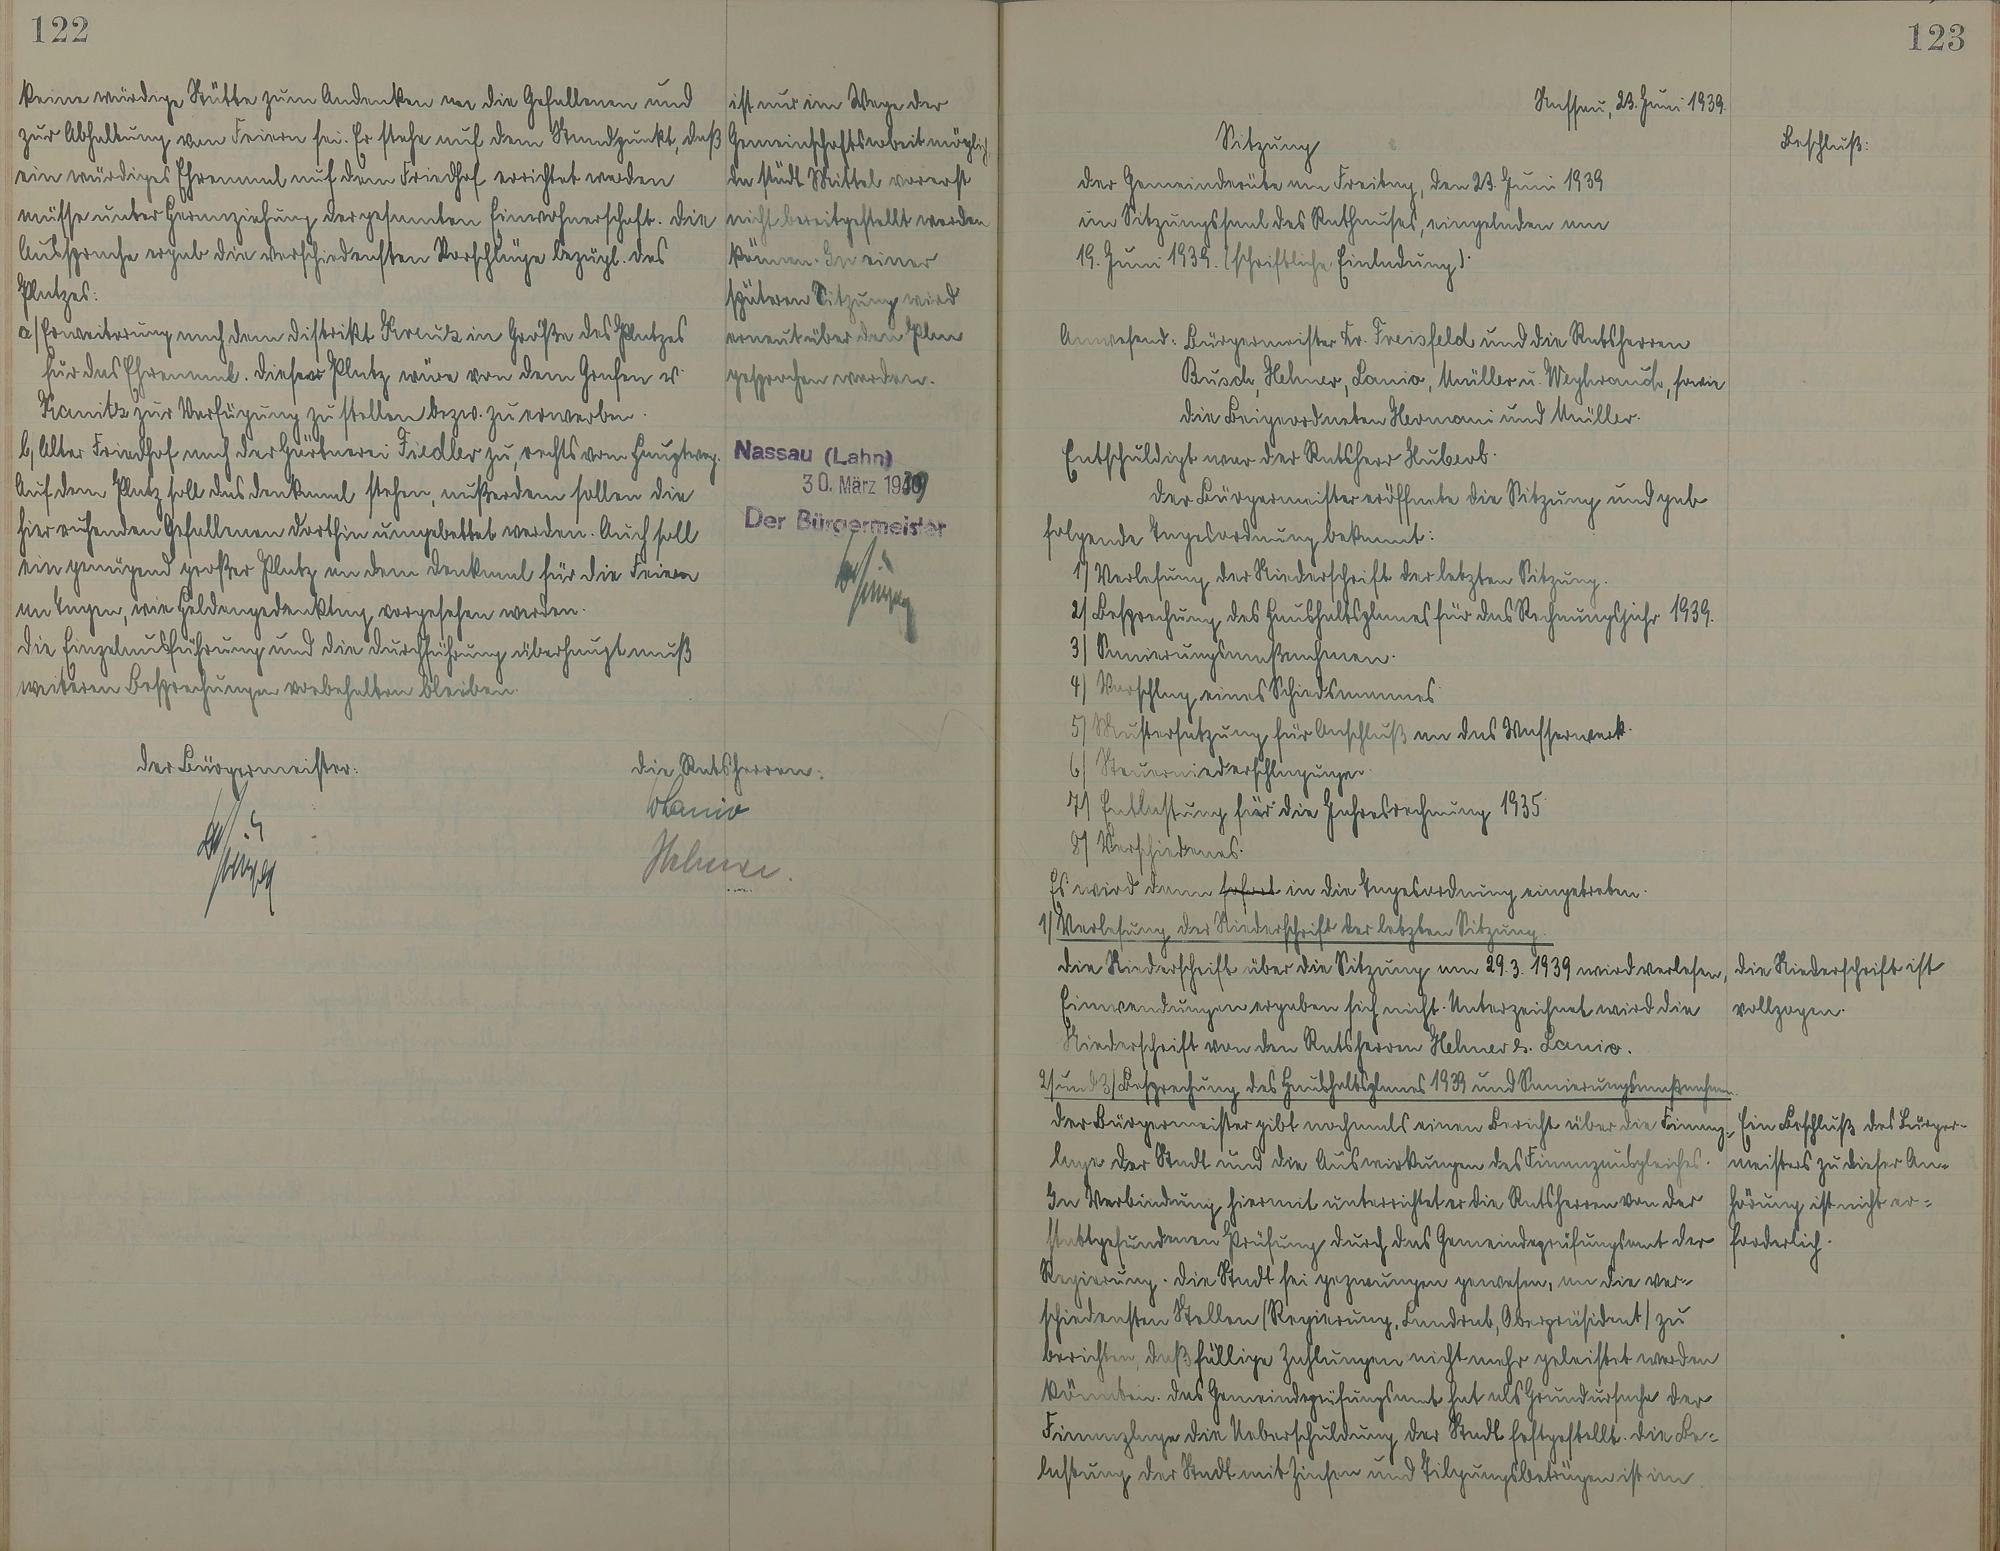 122
keine würdige Stätte zum Andenken an die Gefallenen und
zur Abhaltung von Feiern sei. Er stehe auf dem Standpunkt, daß
ein würdiges Ehrenmal auf dem Friedhof errichtet werden
müsse unter Heranziehung der gesamten Einwohnerschaft. Die
Aussprache ergab die verschiedensten Vorschläge bezügl. des
Platzes:
a) Erweiterung nach dem Distrikt Kreuz in Größe des Platzes
für das Ehrenmal. Dieser Platz wäre von dem Grafen v.
Kanitz zur Verfügung zu stellen bezw. zu erwerben.
b) Alter Friedhof nach der Gärtnerei Fiedler zu, rechts vom Hauptweg.
Auf dem Platz soll das Denkmal stehen, außerdem sollen die
hier ruhenden Gefallenen dorthin umgebettet werden. Auch soll
ein genügend großer Platz an dem Denkmal für die Feiern
an Tagen, wie Heldengedenktag, vorgesehen werden.
Die Einzelausführung und die Durchführung überhaupt muß
weiteren Besprechungen vorbehalten bleiben.
ist nur im Wege der
Gemeinschaftsarbeit möglich
da städt. Mittel vorerst
nicht bereitgestellt werden
können. In einer
späteren Sitzung wird
erneut über den Plan
gesprochen werden.
Nassau (Lahn)
30. März 1939
Der Bürgermeister
Der Bürgermeister:
Die Ratsherren:
Lanio
Hehner.
123
Nassau, 23. Juni 1939.
Sitzung
Beschluß:
der Gemeinderäte am Freitag, den 23. Juni 1939
im Sitzungssaal des Rathauses, eingeladen am
19. Juni 1939. (schriftliche Einladung).
Anwesend: Bürgermeister Dr. Freisfeld und die Ratsherren
Busch, Hehner, Lanio, Müller u. Weyhrauch, sowie
die Beigeordneten Hermani und Müller.
Entschuldigt war der Ratsherr Hubert.
Der Bürgermeister eröffnete die Sitzung und gab
folgende Tagesordnung bekannt:
1) Verlesung der Niederschrift der letzten Sitzung.
2) Besprechung des Haushaltsplanes für das Rechnungsjahr 1939.
3) Sanierungsmaßnahmen.
4) Vorschlag eines Schiedsmannes
5) Mustersatzung für Anschluß an das Wasserwerk.
6) Steuerniederschlagungen.
7) Entlastung für die Jahresrechnung 1935
8) Verschiedenes.
Es wird dann sofort in die Tagesordnung eingetreten.
1) Verlesung der Niederschrift der letzten Sitzung.
Die Niederschrift über die Sitzung am 29.3.1939 wird verlesen,
Einwendungen ergaben sich nicht. Unterzeichnet wird die
Niederschrift von den Ratsherren Hehner u. Lanio.
Die Niederschrift ist
vollzogen.
2) und 3) Besprechung des Haushaltsplanes 1939 und Sanierungsmaßnahmen.
Der Bürgermeister gibt nochmals einen Bericht über die Finanz-
lage der Stadt und die Auswirkungen des Finanzausgleiches.
In Verbindung hiermit unterrichtet er die Ratsherren von der
stattgefundenen Prüfung durch das Gemeindeprüfungsamt der
Regierung. Die Stadt sei gezwungen gewesen, an die ver-
schiedensten Stellen (Regierung, Landrat, Oberpräsident) zu
berichten, daß fällige Zahlungen nicht mehr geleistet werden
könnten. Das Gemeindeprüfungsamt hat als Grundursache der
Finanzlage die Ueberschuldung der Stadt festgestellt. Die Be-
lastung der Stadt mit Zinsen und Tilgungsbeträgen ist im
Ein Beschluß des Bürger-
meisters zu dieser An-
hörung ist nicht er-
forderlich.